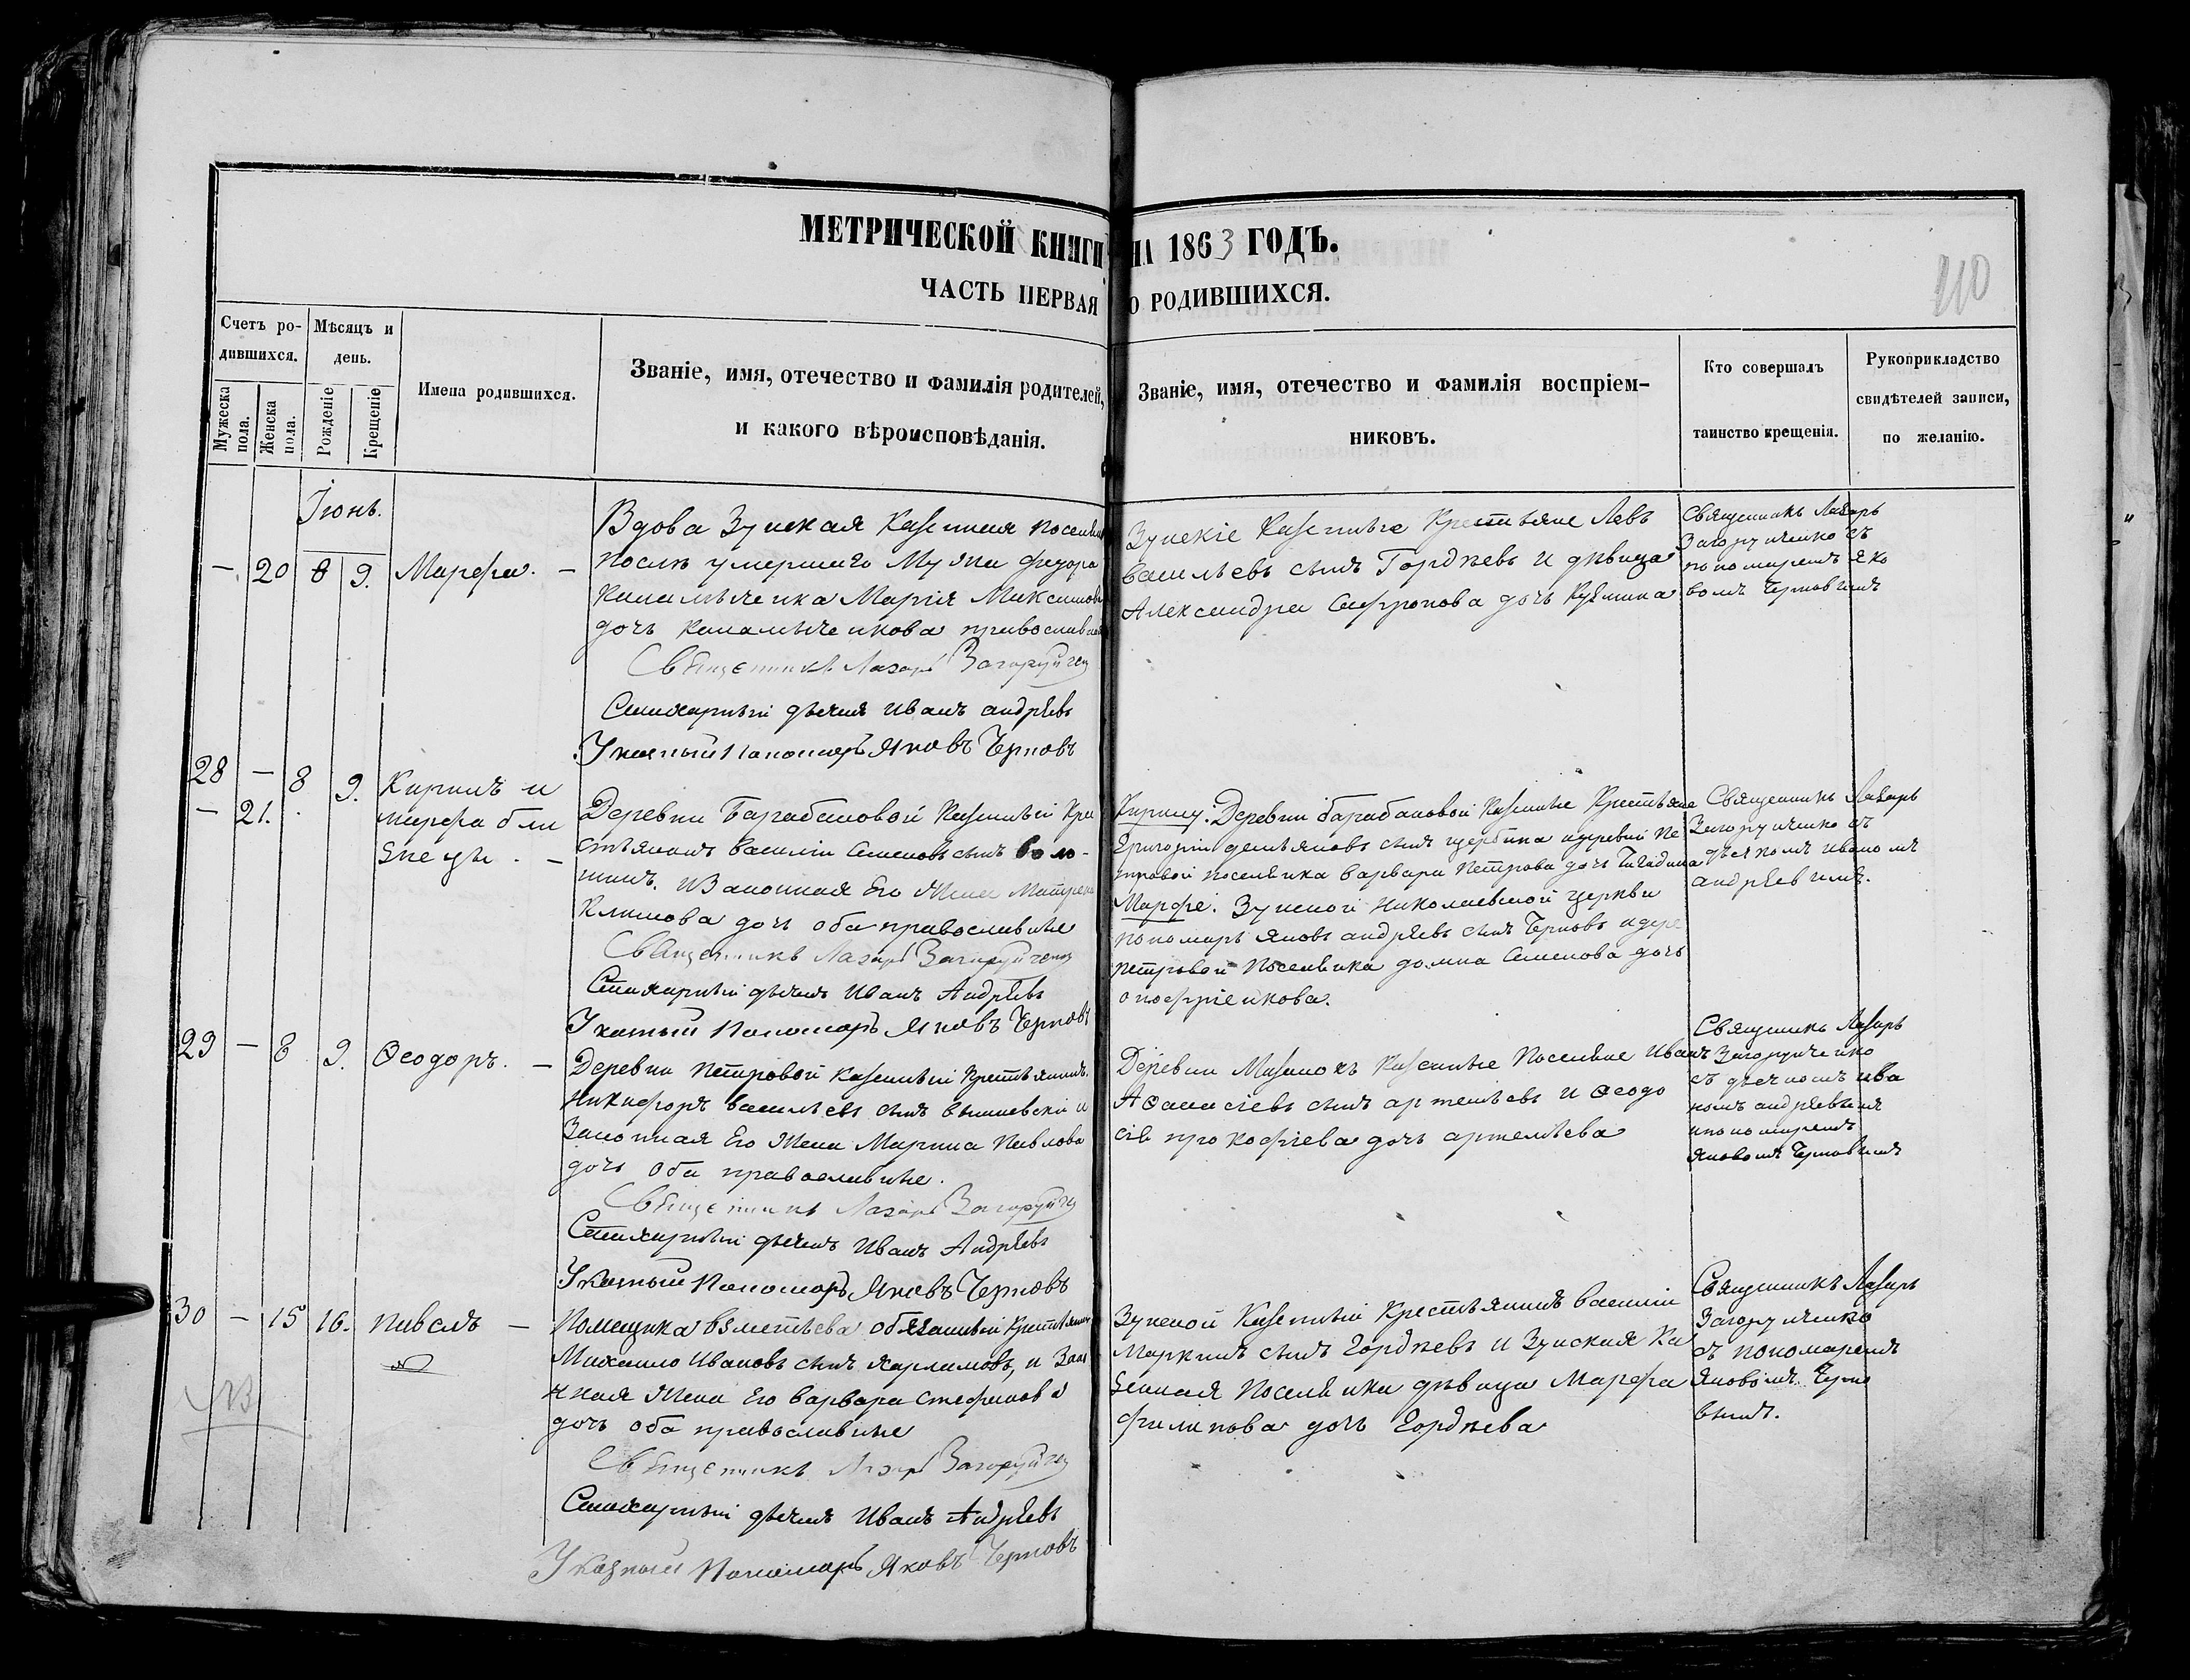 МЕТРИЧЕСКОЙ КНИГИ НА 1863 ГОДЪ.
ЧАСТЬ ПЕРВАЯ О РОДИВШИХСЯ.
110
Счетъ ро-
дившихся.
Мужеска
пола.
Женска
пола.
Мѣсяцъ и
день.
Рожденіе
Крещеніе
Имена родившихся.
Званіе, имя, отечество и фамилія родителей,
и какого вѣроисповѣданія.
Званіе, имя, отечество и фамилія воспріем-
никовъ.
Кто совершалъ
таинство крещенія.
Рукоприкладство
свидѣтелей записи,
по желанію.
Іюнь.
— 20 8 9. Марфа. —
Вдова Зуцкая Казенная
послѣ умершаго Мужа Федора
Марія
дочь православной
Священникъ Лазарь Загоруйченко
Стихарный дьячекъ Иванъ Андрѣевъ
Указный Пономарь Яковъ Черновъ
Казенные Крестьяне Левъ
Васильевъ сынъ Гордѣевъ и дѣвица
Александра Сафронова дочь
Священникъ Лазарь
Загоруйченко съ
пономаремъ Яко
вомъ Черновымъ
28 — 8 9. Кирилъ и
— 21. марфа бли
знецы. —
Деревни Барабановой Казенный Кре
стьянинъ Василій Семеновъ сынъ
и Законная Его Жена Матрена
Климова дочь оба православные
Священникъ Лазарь Загоруйченко
Стихарный дьячекъ Иванъ Андрѣевъ
Указный Пономарь Яковъ Черновъ
Кирилу: Деревни барабановой Казенные Крестьяне
Григорій демьяновъ сынъ щербина и деревни Пе
тровой поселянка варвара Петрова дочь
Марфе. Николаевской церкви
пономарь Яковъ андрѣевъ сынъ Черновъ и дере
петровой Поселянка домна Семенова дочь
онофріенкова.
Священникъ Лазарь
Загоруйченко съ
дьячкомъ Иваномъ
андрѣевымъ.
29 — 8 9. Ѳеодоръ. —
Деревни Петровой Казенный Крестьянинъ
Никифоръ васильевъ сынъ вишневскій и
Законная Его Жена Марина Павлова
дочь Оба православные.
Священникъ Лазарь Загоруйченко
Стихарный дьячекъ Иванъ Андрѣевъ
Указный Пономарь Яковъ Черновъ
Деревни Казенные Поселяне Иванъ
Аѳанасіевъ сынъ артемьевъ и Ѳеодо
сія прокофіева дочь артемьева
Священникъ Лазарь
Загоруйченко
съ дьячкомъ Ива
номъ андрѣевымъ
и пономаремъ
Яковомъ Черновымъ
30 — 15 16. Павелъ —
Помещика обязанный Крестьянинъ
Михаило Ивановъ сынъ Харламовъ, и Зако
нная Жена Его Варвара Стефанова
дочь оба православные
Священникъ Лазарь Загоруйченко
Стихарный дьячекъ Иванъ Андрѣевъ
Указный Пономарь Яковъ Черновъ
Казенный Крестьянинъ василій
Маркинъ сынъ Гордѣевъ и Зуцкая Ка
зенная Поселянка дѣвица Марфа
филипова дочь Гордѣева
Священникъ Лазарь
Загоруйченко
съ пономаремъ
Яковомъ Черно
вымъ.